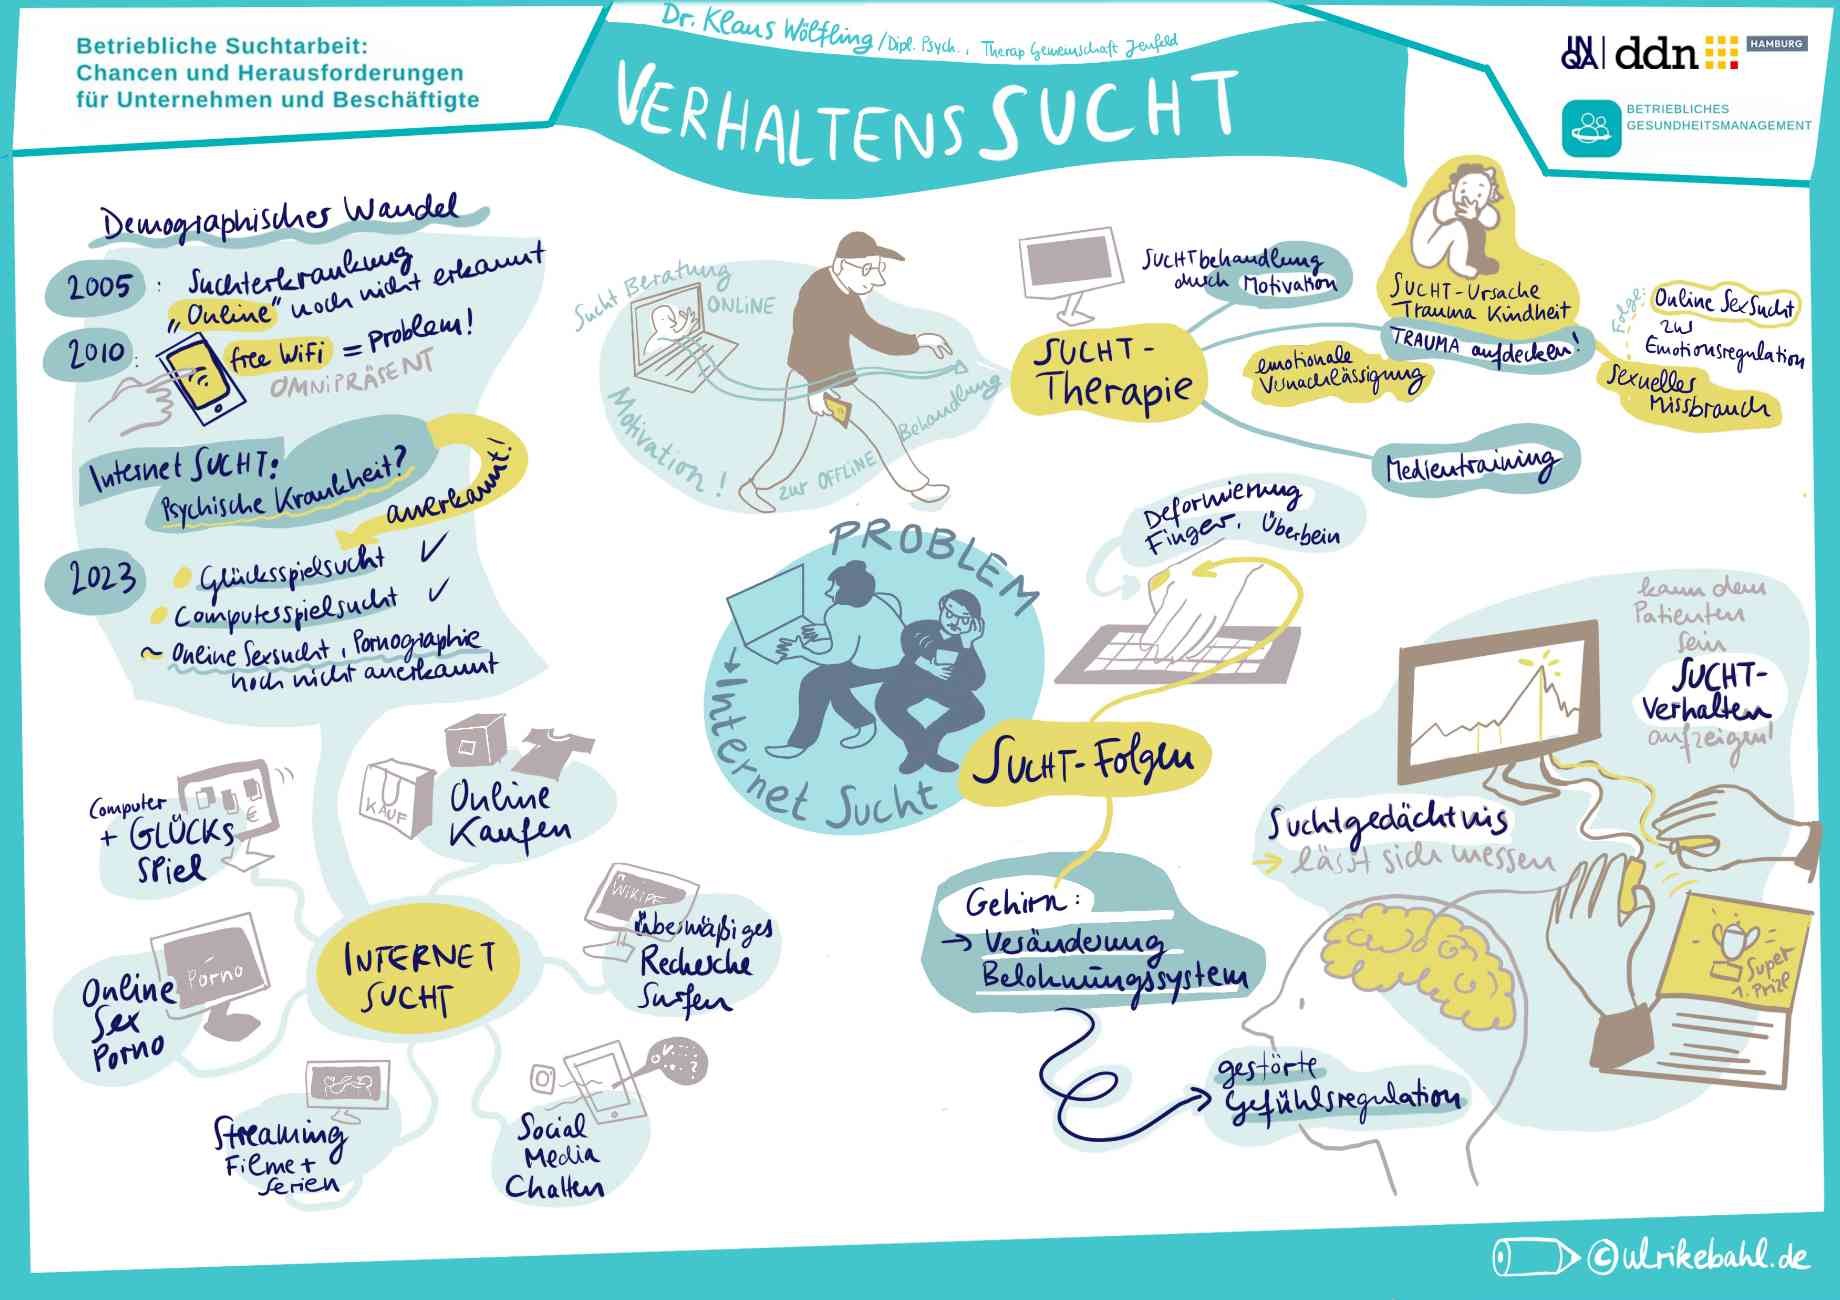 Betriebliche Suchtarbeit:
Chancen und Herausforderungen
für Unternehmen und Beschäftigte
Dr. Klaus Wölfling / Dipl. Psych., Therap Gemeinschaft Jenfeld
VERHALTENSSUCHT
INQA ddn HAMBURG
BETRIEBLICHES
GESUNDHEITSMANAGEMENT
Demographischer Wandel
2005: Suchterkrankung
„Online" noch nicht erkannt
2010: free WiFi = Problem!
OMNIPRÄSENT
Internet SUCHT:
Psychische Krankheit?
anerkannt!
2023
Glücksspielsucht ✓
Computerspielsucht ✓
~ Online Sexsucht, Pornographie
noch nicht anerkannt
INTERNET
SUCHT
Computer
+ GLÜCKS
Spiel
€
KAUF
Online
Kaufen
WIKIPE
übermäßiges
Recherche
Surfen
Social
Media
Chatten
Streaming
Filme +
Serien
Porno
Online
Sex
Porno
Sucht Beratung
ONLINE
Motivation!
zur OFFLINE
Behandlung
PROBLEM
→ Internet Sucht
SUCHT-
Therapie
SUCHTbehandlung
durch Motivation
SUCHT-Ursache
Trauma Kindheit
TRAUMA aufdecken!
emotionale
Vernachlässigung
Folge:
Online SexSucht
zur
Emotionsregulation
Sexueller
Missbrauch
Medientraining
Deformierung
Finger, Überbein
SUCHT-Folgen
Gehirn:
→ Veränderung
Belohnungssystem
gestörte
Gefühlsregulation
kann dem
Patienten
sein
SUCHT-
Verhalten
aufzeigen!
Suchtgedächtnis
→ lässt sich messen
Super
1. Prize
©ulrikebahl.de